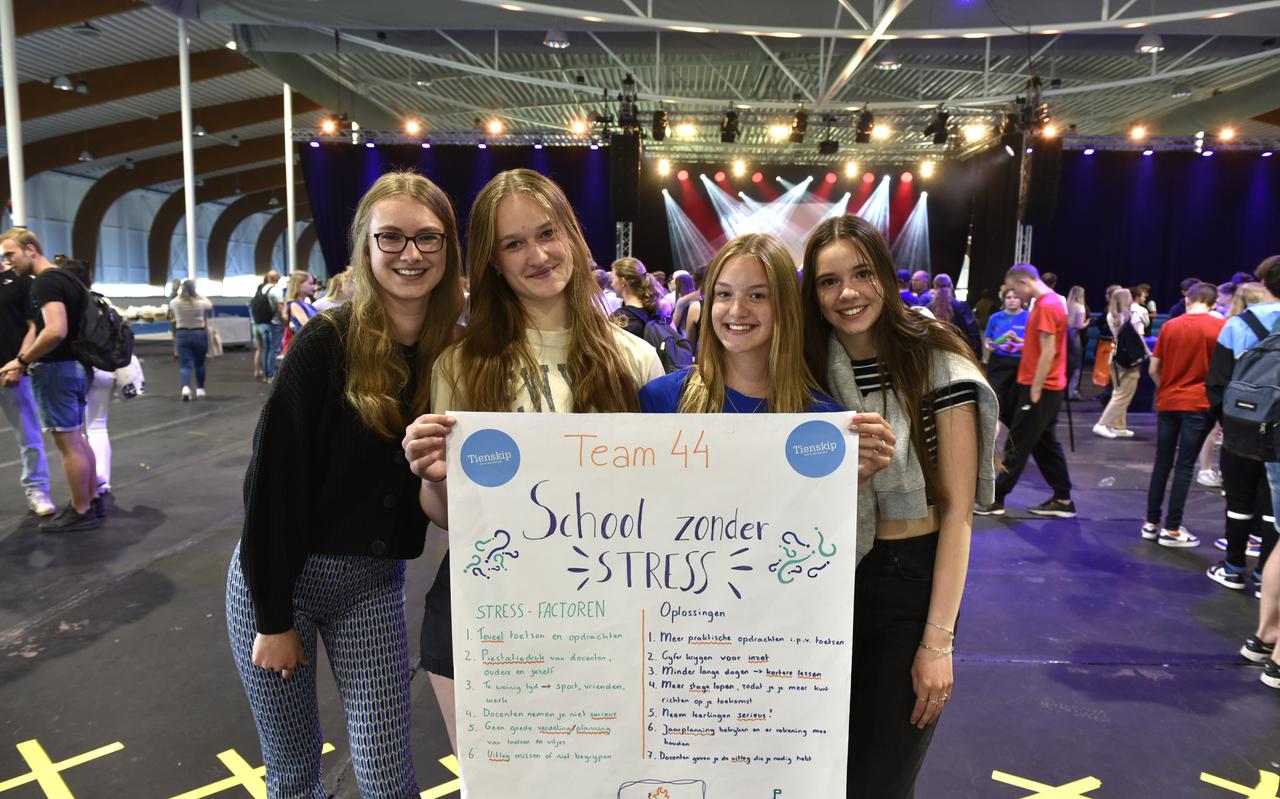 Team 44
Tienskip
Tienskip
School zonder
STRESS
STRESS-FACTOREN
1. Teveel toetsen en opdrachten
2. Prestatiedruk van docenten,
ouders en jezelf
3. Te weinig tijd → sport, vrienden,
werk
4. Docenten nemen je niet serieus
5. Geen goede verdeling/planning
van toetsen en uitjes
6. Uitleg missen of niet begrijpen
Oplossingen
1. Meer praktische opdrachten i.p.v. toetsen
2. Cijfer krijgen voor inzet
3. Minder lange dagen → kortere lessen
4. Meer stage lopen, zodat je je meer kunt
richten op je toekomst
5. Neem leerlingen serieus!
6. Jaarplanning bekijken en er rekening mee
houden
7. Docenten geven je de uitleg die je nodig hebt